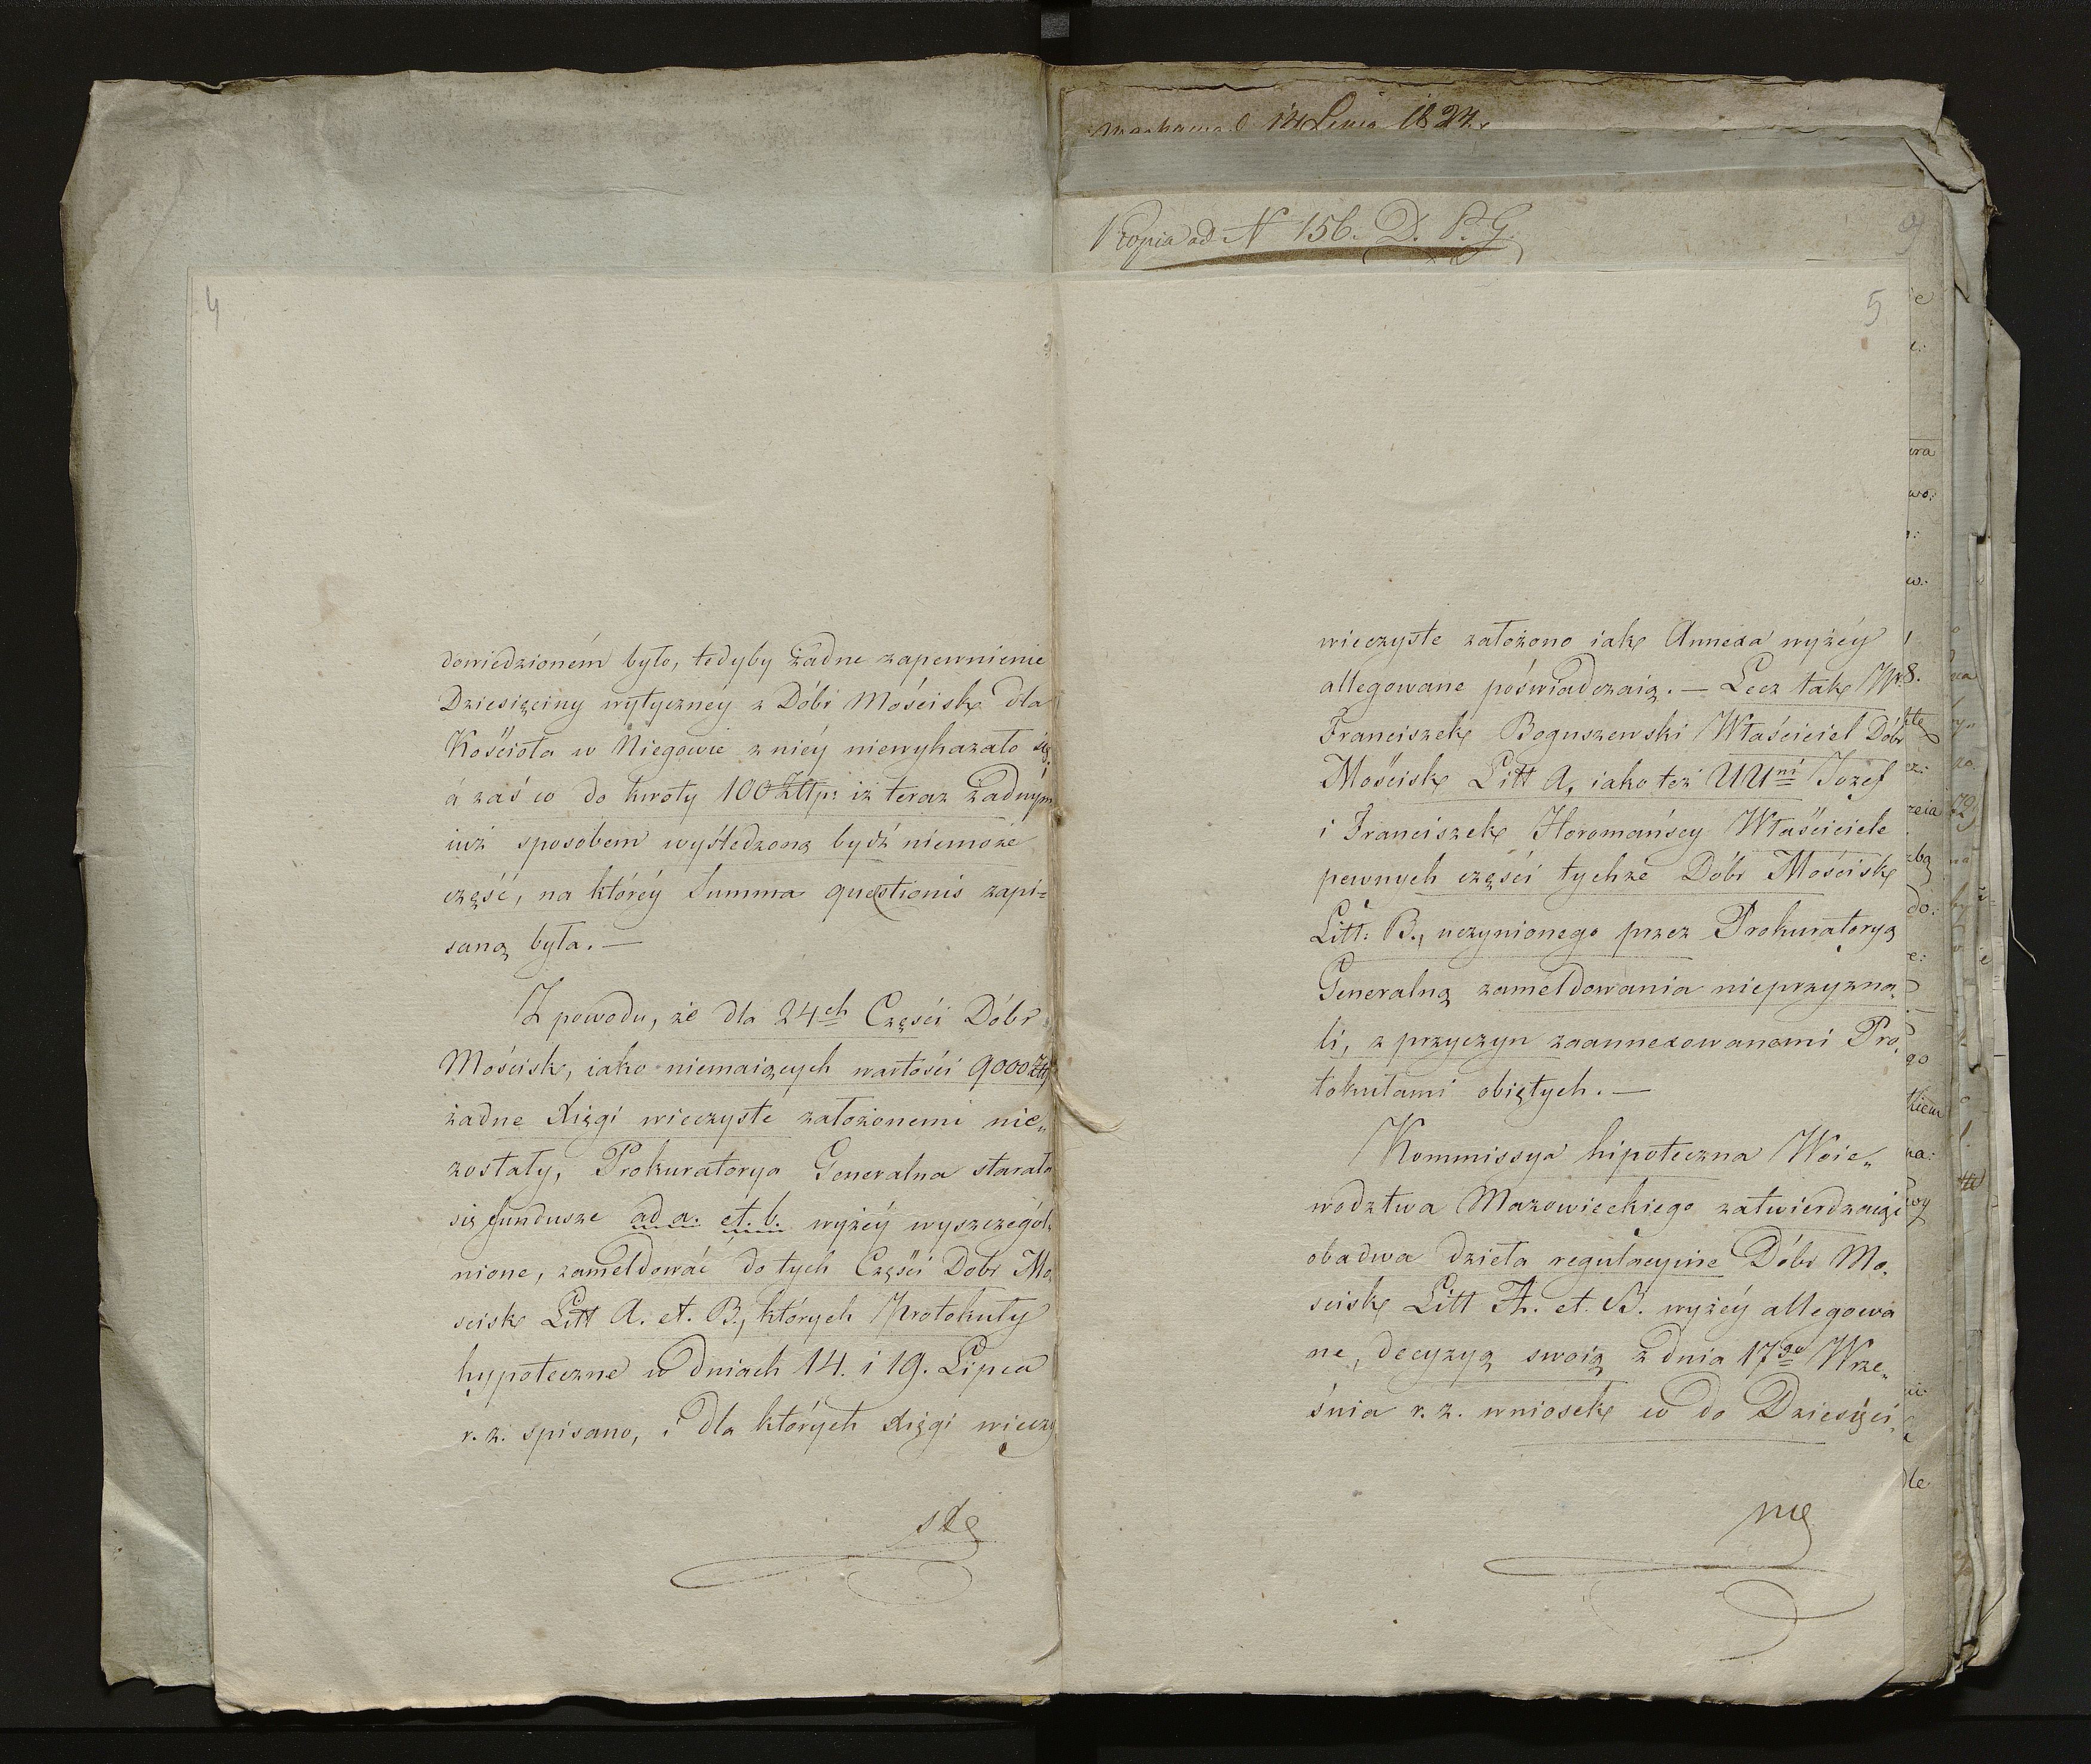 4
dowiedzioném było, tedyby żadne zapewnienie
Dziesięciny wytycznéy z Dóbr Mościsk dla
Kościoła w Niegowie z niéy niewykazało się,
á zaś co do kwoty 100 Złtp: iż teraz żadnym
iuż sposobem wyśledzoną bydź niemoże
część, na któréy Summa questionis zapi=
saną była. —
Z powodu, że dla 24ch Części Dóbr
Mościsk, iako niemaiących wartości 9000 Złt
żadne Xięgi wieczyste założonemi nie„
zostały, Prokuratorya Generalna starała
się fundusze ad a. et. b. wyżéy wyszczegól„
nione, zameldować do tych Części Dóbr Mo„
ścisk Litt A. et. B., których Protokuły
hypoteczne w dniach 14. i 19. Lipca
r. z. spisano, i dla których Xięgi wieczy
ste
Warszawa d 14 1824.
Kopia ad N 156. D. P. G.
5
wieczyste założono iak Annexa wyżéy
allegowane poświadczaią. — Lecz tak W.
Franciszek Boguszewski Właściciel Dóbr
Mościsk Litt A, iako też UUni Jozef
i Franciszek Horomańscy Właściciele
pewnych części tychże Dóbr Mościsk
Litt: B., uczynionego przez Prokuratoryą
Generalną zameldowania nieprzyzna„
li, z przyczyn zaannexowanemi Pro„
tokułami obiętych. —
Kommissya hipoteczna Woie„
wodztwa Mazowieckiego zatwierdzaiąc
obadwa dzieła regulacyine Dóbr Mo„
ścisk Litt A. et. B. wyżéy allegowa
ne, decyzyą swoią z dnia 17go Wrze„
śnia r. z. wniosek co do Dziesięci„
ny